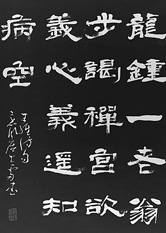 龍鍾一老翁
步謁禪宮欲
義心義遥知
病空
王維詩句